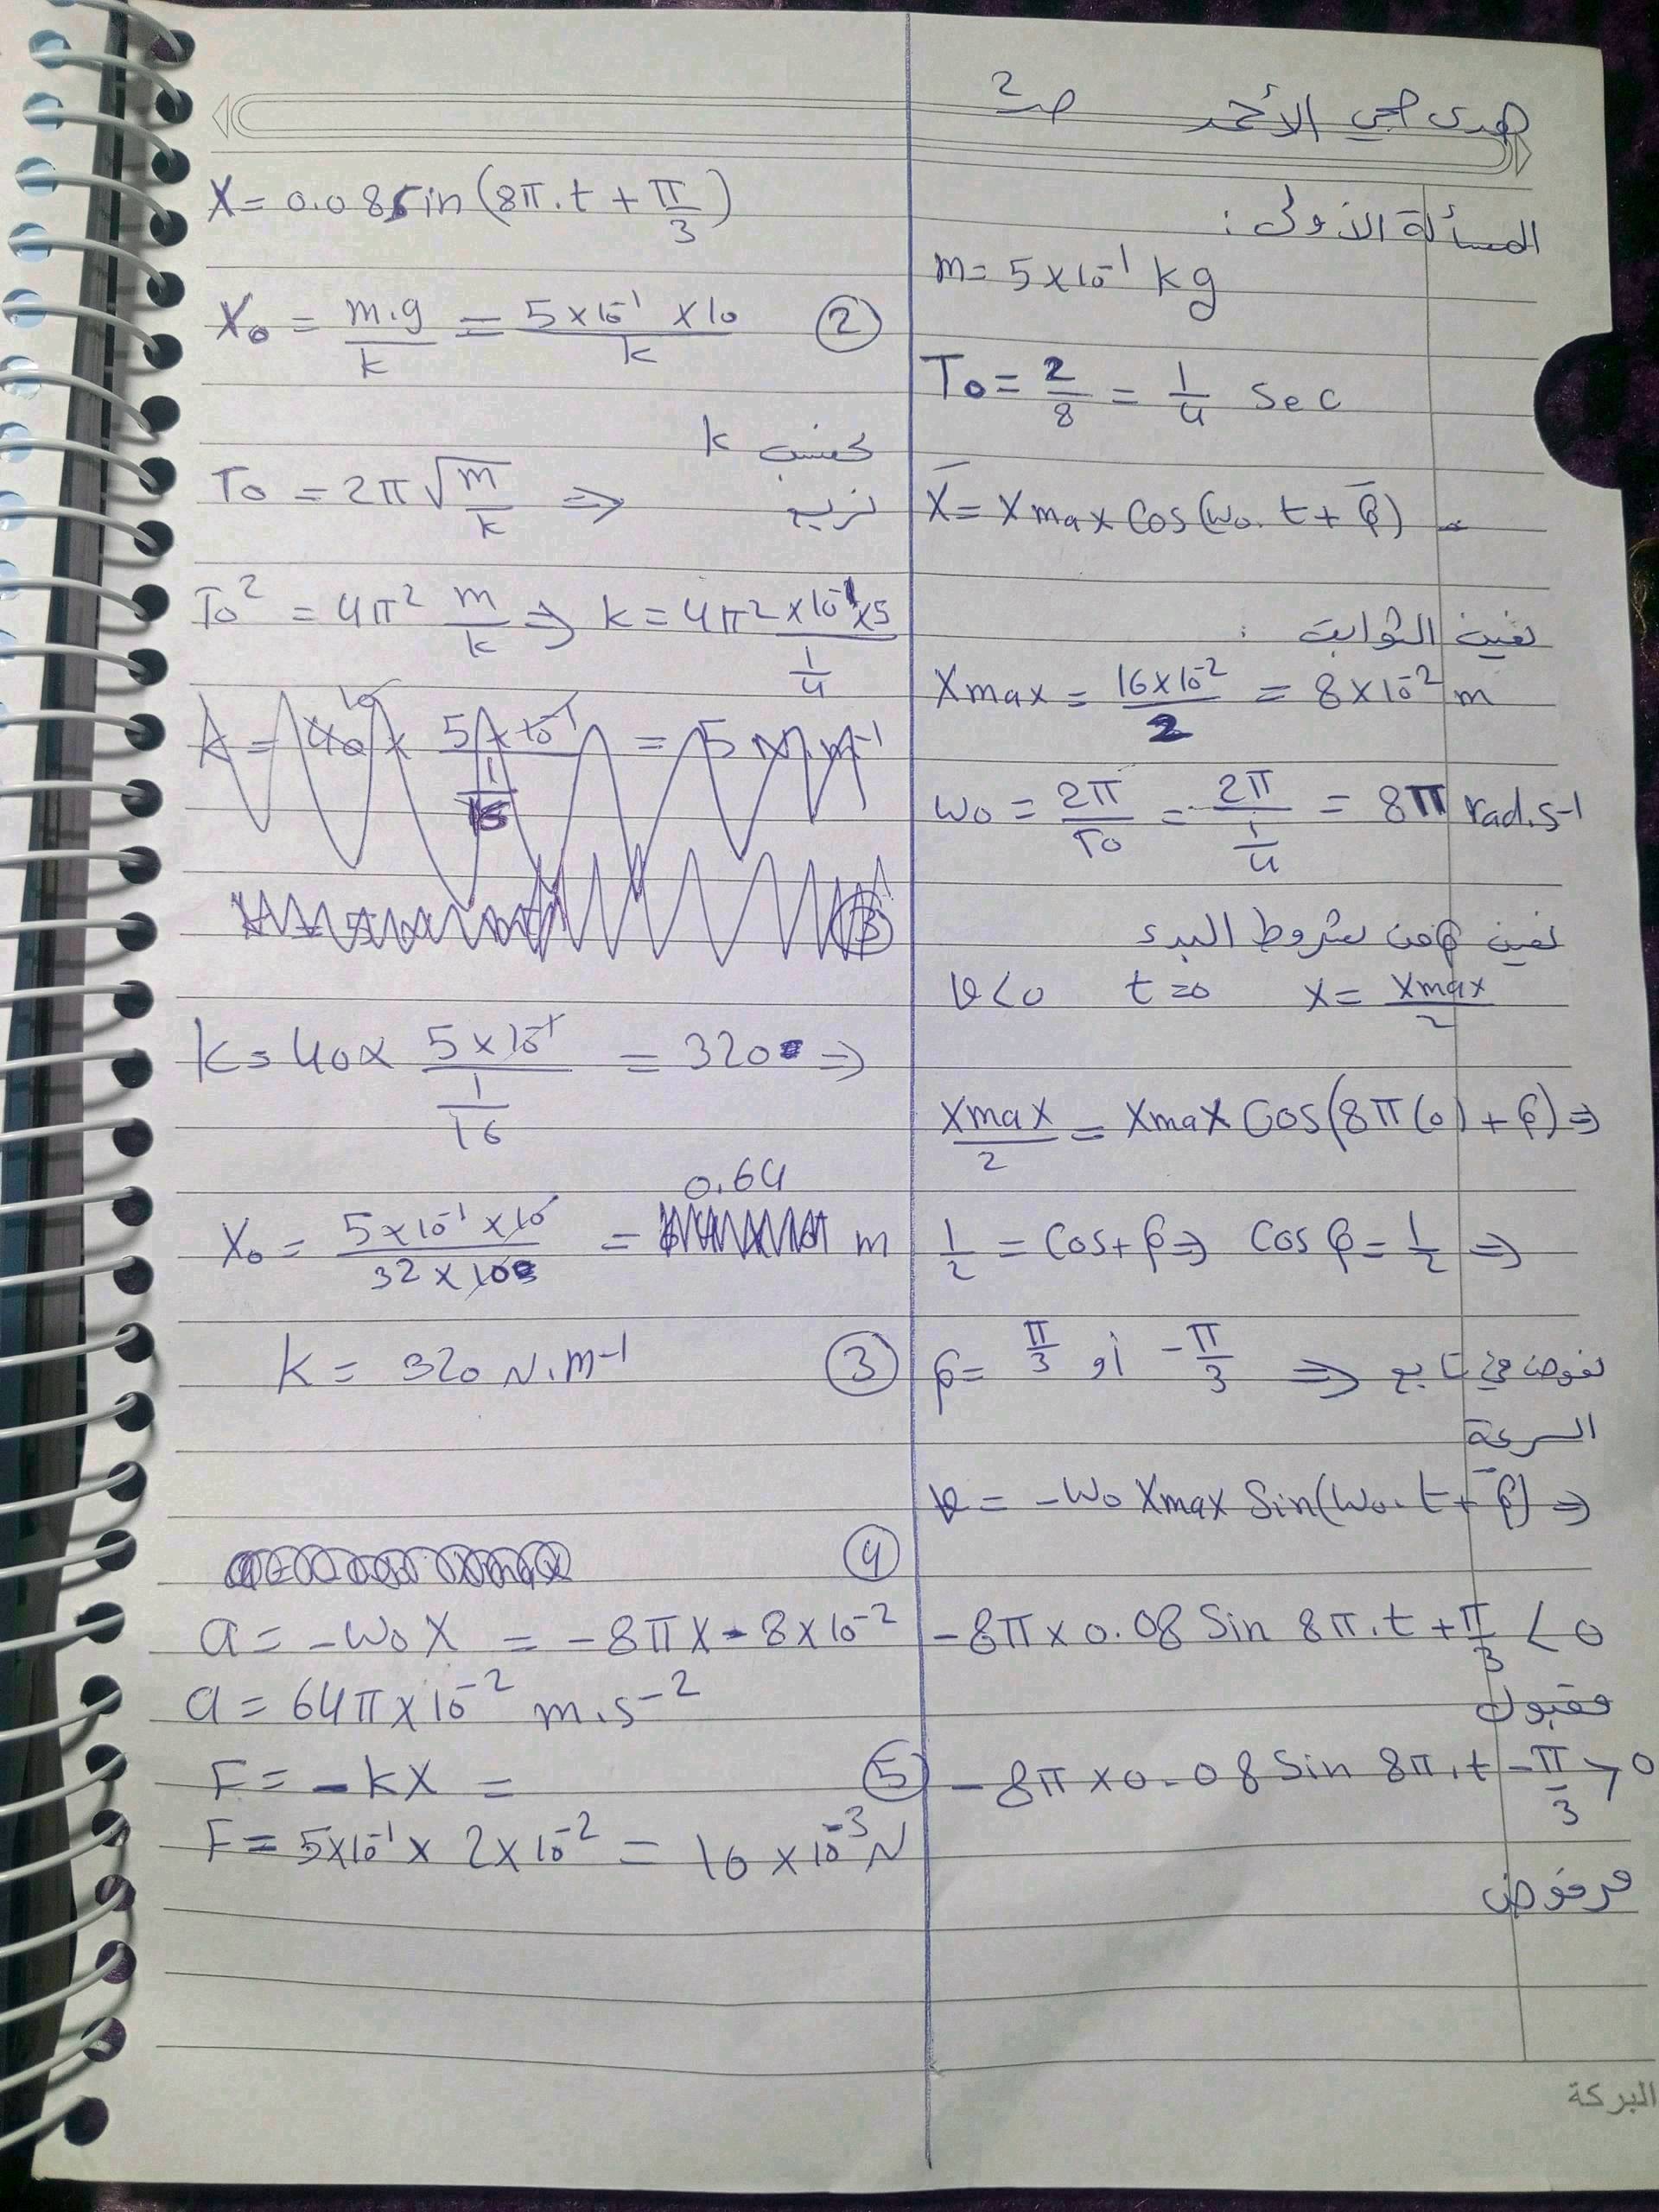 هدى صبحي الأحمد ص2
المسألة الأولى :
m = 5×10⁻¹ kg
T₀ = 2/8 = 1/4 sec
x̄ = Xmax Cos(ω₀.t + φ̄) -
نعين الثوابت :
Xmax = 16×10⁻²/2 = 8×10⁻² m
ω₀ = 2π/T₀ = 2π/(1/4) = 8π rad.s⁻¹
نعين φ من شروط البدء
v<0 t=0 x = Xmax/2
Xmax/2 = Xmax Cos(8π(0) + φ) ⇒
1/2 = Cos + φ ⇒ Cos φ = 1/2 ⇒
φ = π/3 أو -π/3 ⇒ نعوض في تابع
السرعة
v = -ω₀ Xmax Sin(ω₀.t + φ̄) ⇒
-8π × 0.08 Sin 8π.t + π/3 < 0
مقبول
- 8π × 0.08 Sin 8π.t - π/3 > 0
مرفوض
X = 0.08 sin(8π.t + π/3)
② X₀ = m.g/k = 5×10⁻¹ × 10/k
نحسب k
T₀ = 2π√(m/k) ⇒ نربع
T₀² = 4π² m/k ⇒ k = 4π² ×10⁻¹×5/(1/4)
k = 40 × 5×10⁻¹/(1/16) = 5 N.m⁻¹
③
k = 40 × 5×10⁻¹/(1/16) = 320 ⇒
X₀ = 5×10⁻¹×10/32×10 = 0.64 m
③ k = 320 N.m⁻¹
④
a = -ω₀ X = -8π × -8×10⁻²
a = 64π×10⁻² m.s⁻²
⑤ F = -kX =
F = 5×10⁻¹ × 2×10⁻² = 10 × 10⁻³ N
البركة